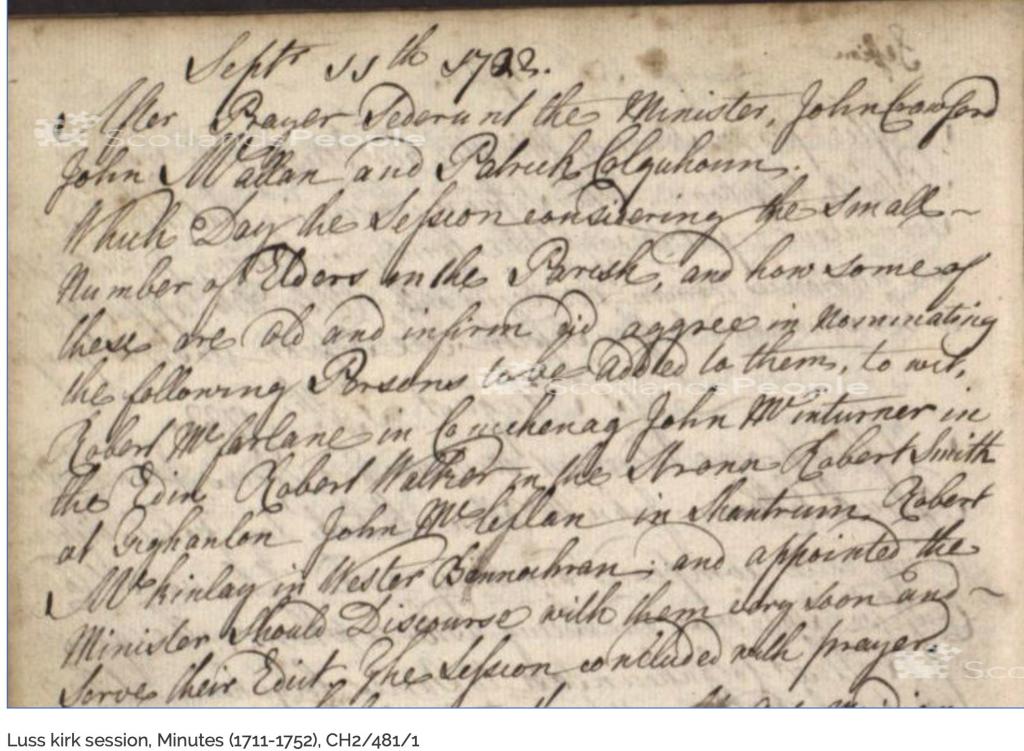 Sept.r 11th 1722.
After Prayer Sederunt the Minister, John Crawford
John Mcallan and Patrick Colquhoun.
Which Day the Session considering the small ~
Number of Elders in the Parish, and how some of
these are old and infirm did aggree in Nominating
the following Persons to be added to them, to wit,
Robert Mcfarlane in John Mcinturner in
the Edin Robert Walker in the Strona Robert Smith
at John Mclellan in Shantrum Robert
Mckinlay in Wester Bannachran; and appointed the
Minister should Discourse with them very soon and ~
Serve their Edict. The Session concluded with prayer.
ScotlandsPeople
ScotlandsPeople
Luss kirk session, Minutes (1711-1752), CH2/481/1